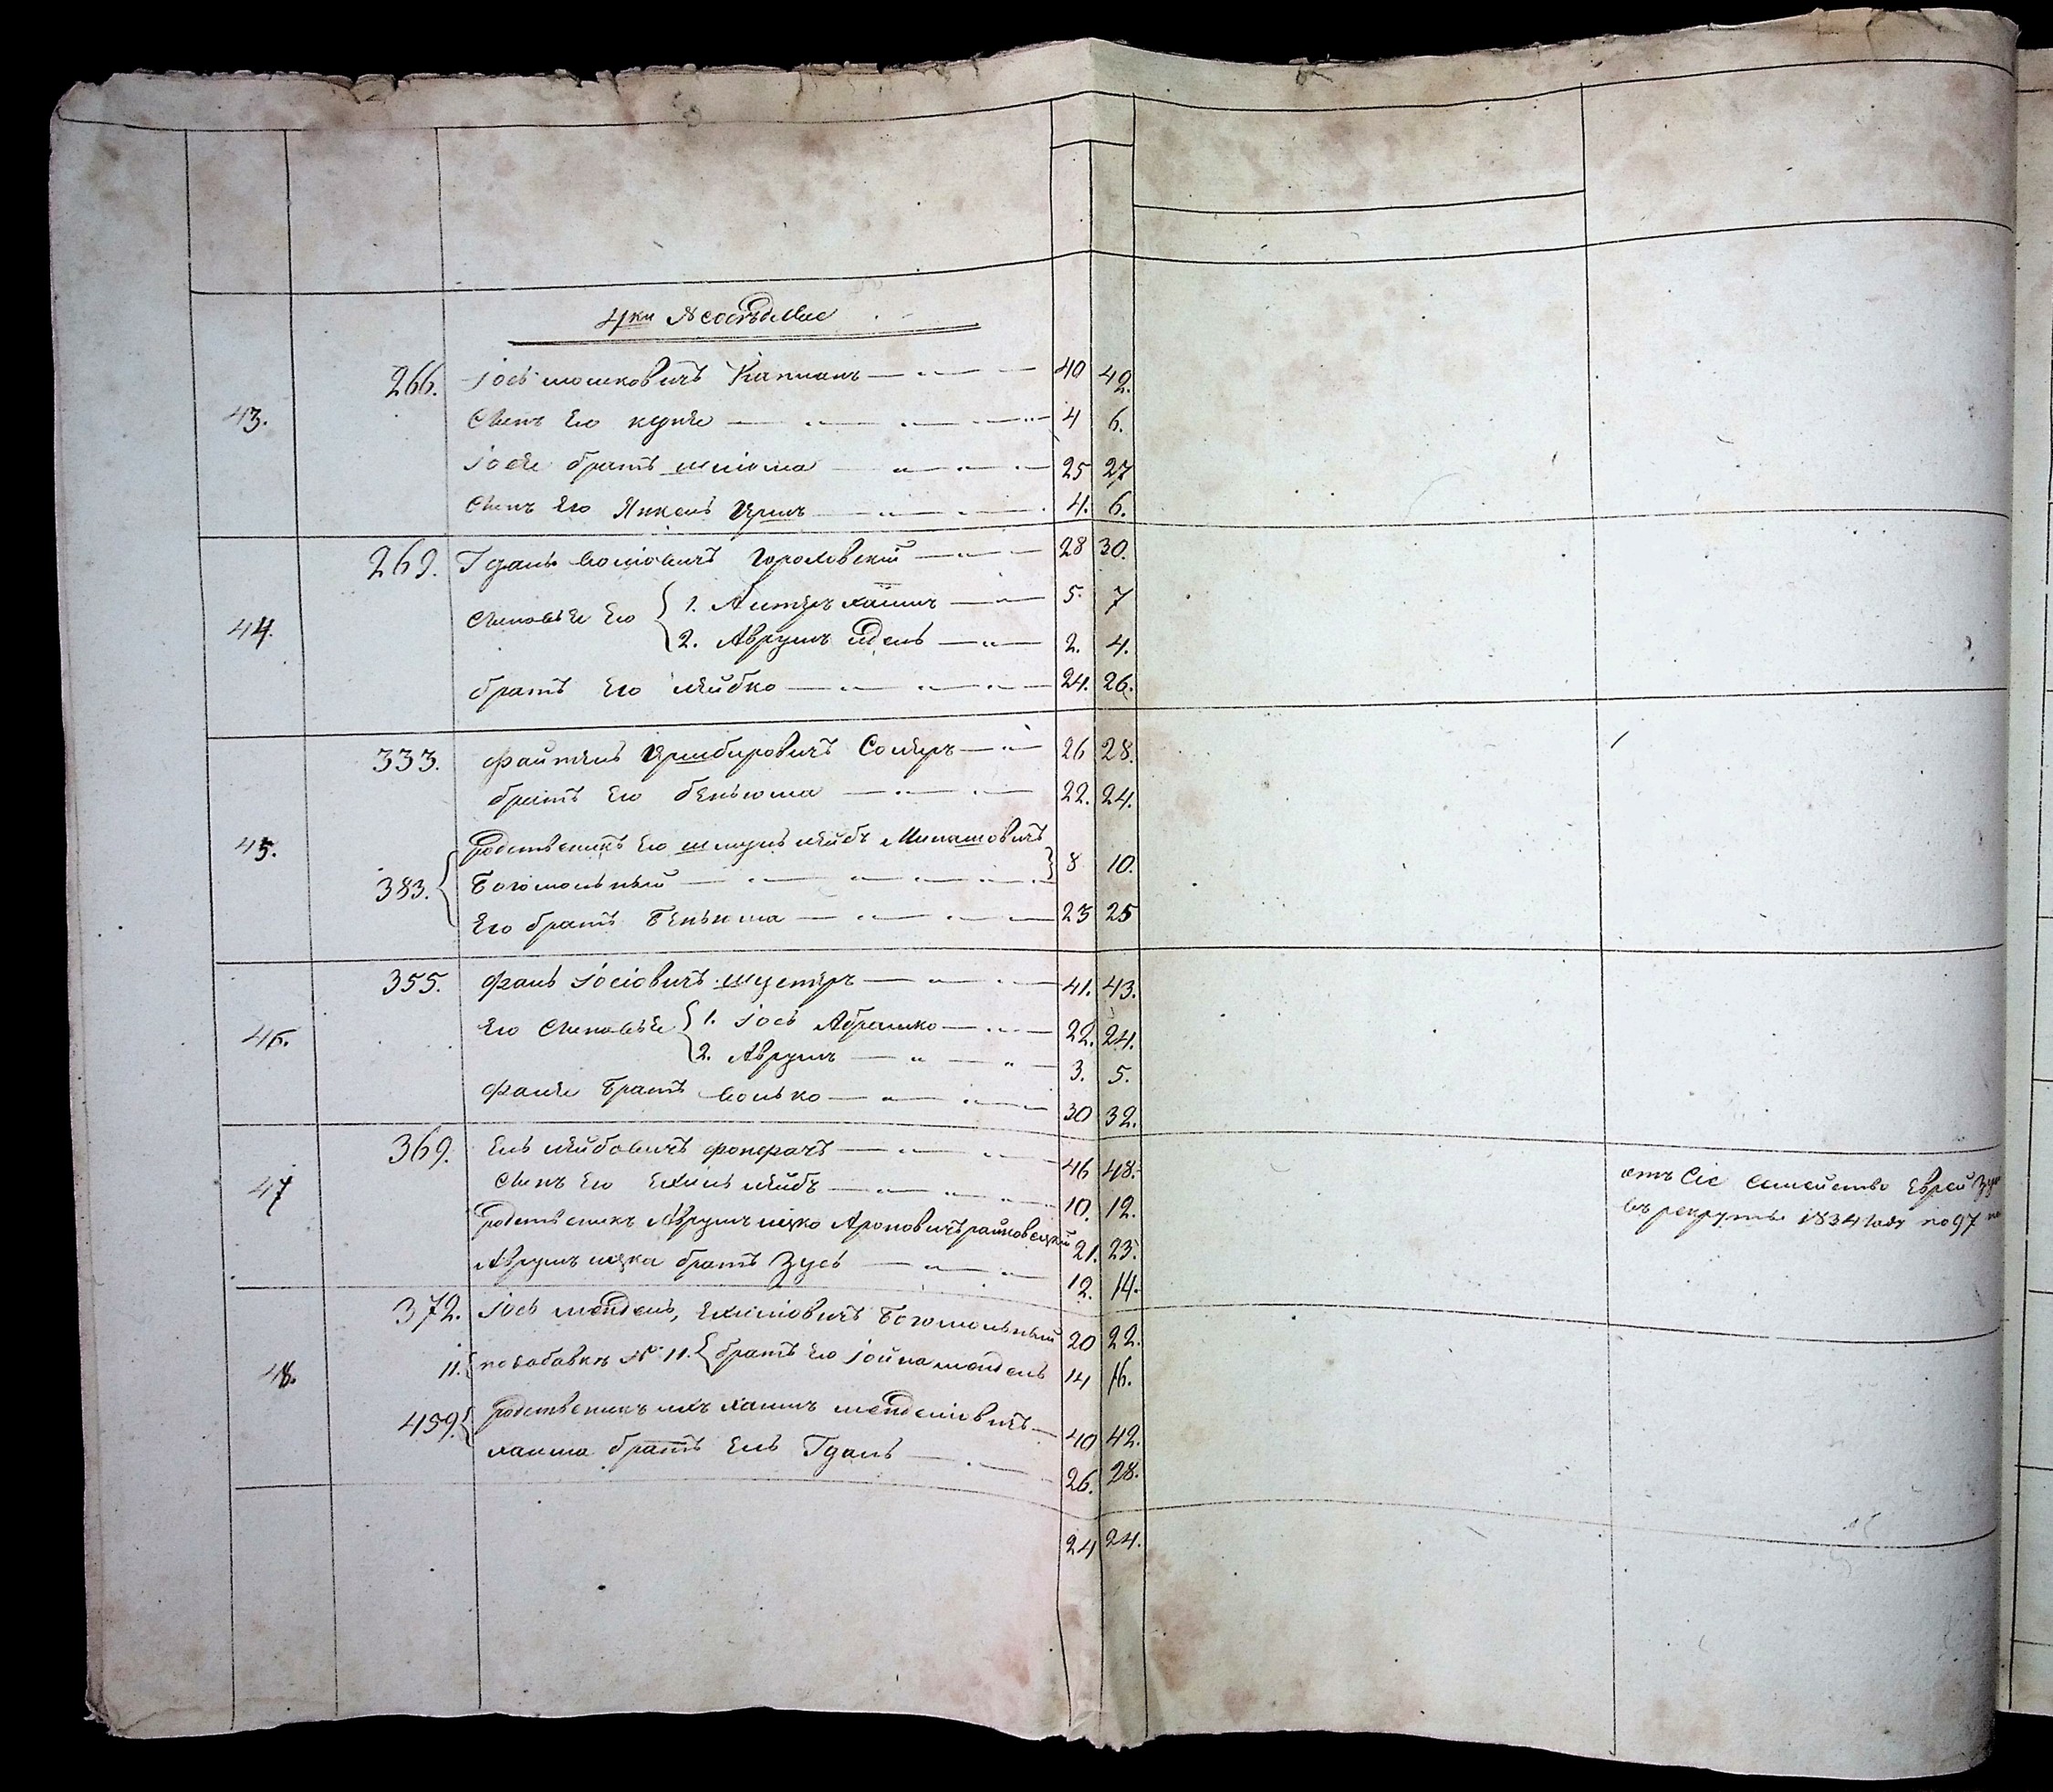 4ки
266. Іось Мошковичъ Капланъ 40 42.
43. Сынъ Его 4 6.
Іося братъ Шлюма 25 27
Сынъ Его Янкель Иршъ 4. 6.
269. Гдаль Волковичъ 28 30.
44. Сыновья Его 1. Альтеръ Хаимъ 5. 7
2. Аврумъ Идель 2. 4.
братъ Его Лейбко 24. 26.
333. Файтель Иршберовичъ 26 28.
братъ Его Беньюма 22. 24.
Родственикъ Его Шмуль Лейбъ
45. 383. Богомольный 8 10.
Его братъ Беньюма 23 25
355. Фаль Іосіовичъ Шустеръ 41. 43.
46. Его Сыновья 1. Іось Абрамко 22. 24.
2. Аврумъ 3. 5.
Фаля братъ Волько 30 32.
369. Ель Лейбовичъ 46 48.
47 Сынъ Его Ехиль Лейбъ 10. 12. отъ Сіе Семейство Еврей
Родственикъ Аврумъ Ицко Ароновичъ 21. 23. въ рекруты 1834 года по 97
Аврумъ Ицка братъ Зусь 12. 14.
372. Іось Мендель, Ехиліовичъ Богомольный 20 22.
48. 11. по добавкѣ № 11. братъ Его Іойна Мендель 14 16.
459. Родственикъ ихъ Хаимъ Менделіовичъ 40 42.
Хаима братъ Ель Гдаль 26. 28.
24 24.